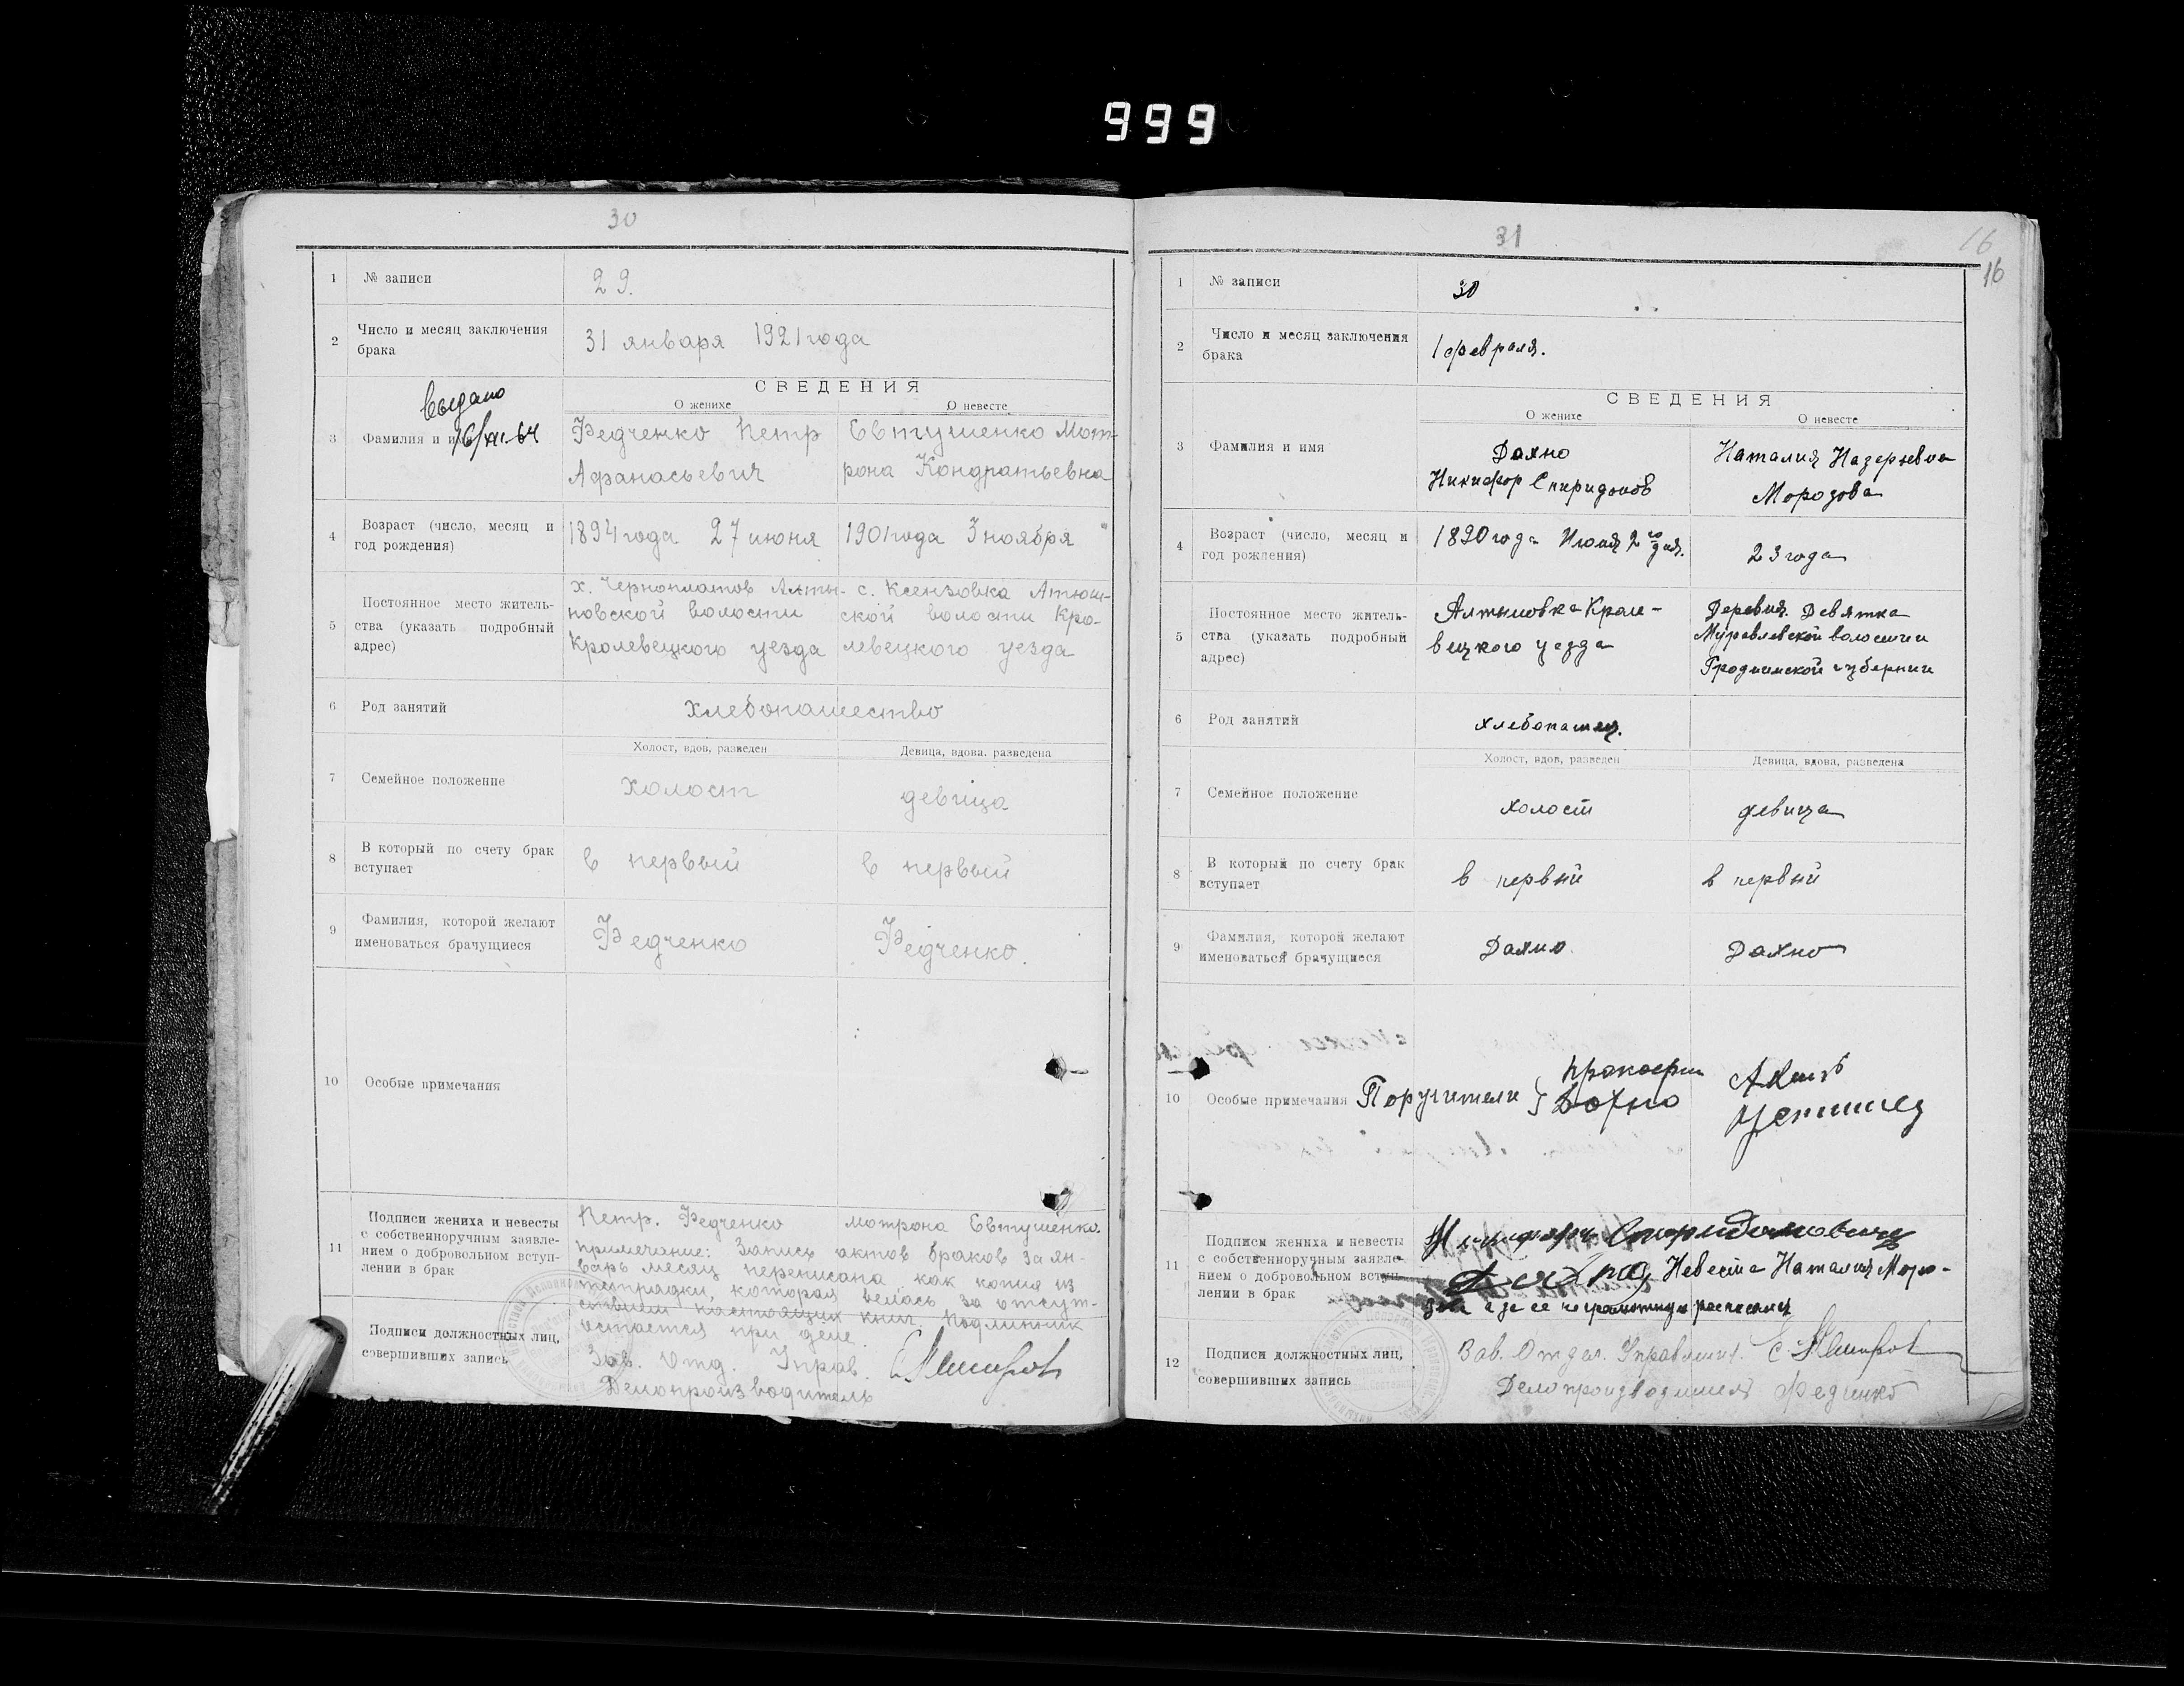 999
30
1 № записи 29.
2 Число и месяц заключения брака 31 января 1921 года
СВЕДЕНИЯ
О женихе О невесте
Выдано
16/XII-64
3 Фамилия и имя
Федченко Петр Евтушенко Мат-
Афанасьевич рона Кондратьевна
4 Возраст (число, месяц и год рождения) 1894 года 27 июня 1901 года 3 ноября
5 Постоянное место жительства (указать подробный адрес)
х. Черноплатов Алты- с. Ксензовка Атюш-
новской волости ской волости Кро-
Кролевецкого уезда левецкого уезда
6 Род занятий хлебопашество
Холост, вдов, разведен Девица, вдова, разведена
7 Семейное положение холост девица
8 В который по счету брак вступает в первый в первый
9 Фамилия, которой желают именоваться брачущиеся Федченко Федченко.
10 Особые примечания
11 Подписи жениха и невесты с собственноручным заявлением о добровольном вступлении в брак
Петр. Федченко Матрона Евтушенко.
примечание: Запись актов браков за ян-
варь месяц переписана как копия из
тетрадки, которая велась за отсут-
ствием настоящих книг. Подлинник
остается при деле.
Подписи должностных лиц, совершивших запись
Зав. Отд. Управ.
Делопроизводитель
31
16
16
1 № записи 30
2 Число и месяц заключения брака 1 февраля.
СВЕДЕНИЯ
О женихе О невесте
3 Фамилия и имя
Дахно Наталия Назарьевна
Никифор Спиридонов Морозова
4 Возраст (число, месяц и год рождения) 1890 года Июля 2го дня. 23 года
5 Постоянное место жительства (указать подробный адрес)
Алтыновка Крале- Деревня Девятка
вецкого уезда Муравлевской волости
Гродненской губернии
6 Род занятий хлебопашец.
Холост, вдов, разведен Девица, вдова, разведена
7 Семейное положение холост девица
8 В который по счету брак вступает в первый в первый
9 Фамилия, которой желают именоваться брачущиеся Дахно Дахно
10 Особые примечания Поручители Прокофий
Дохно
11 Подписи жениха и невесты с собственноручным заявлением о добровольном вступлении в брак
Никифор Спиридонович
Дахно, Невеста Наталия Моро-
зова а за ее неграмотную расписался
12 Подписи должностных лиц, совершивших запись
Зав. Отдел. Управлен.
Делопроизводитель Федченко